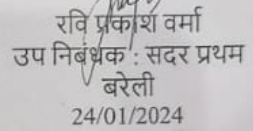 रवि प्रकाश वर्मा
उप निबंधक : सदर प्रथम
बरेली
24/01/2024